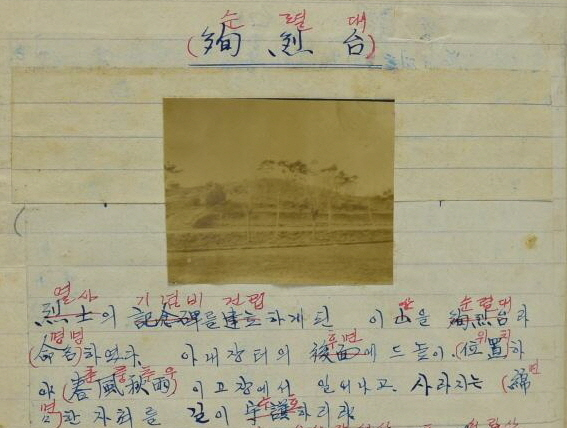 순 렬 대
(殉 烈 台)
열사 기념비 건립 산 순렬대
烈士의 記念碑를 建立하게 된 이 山을 殉烈台라
명명 후면 위치
(命名)하였다. 아내장터의 後面에 드높이 (位置)하
춘풍추우 면
야 (春風秋雨) 이고장에서 일어나고 사라지는 (綿
면 수호
綿)한 자최를 길이 守護하리라